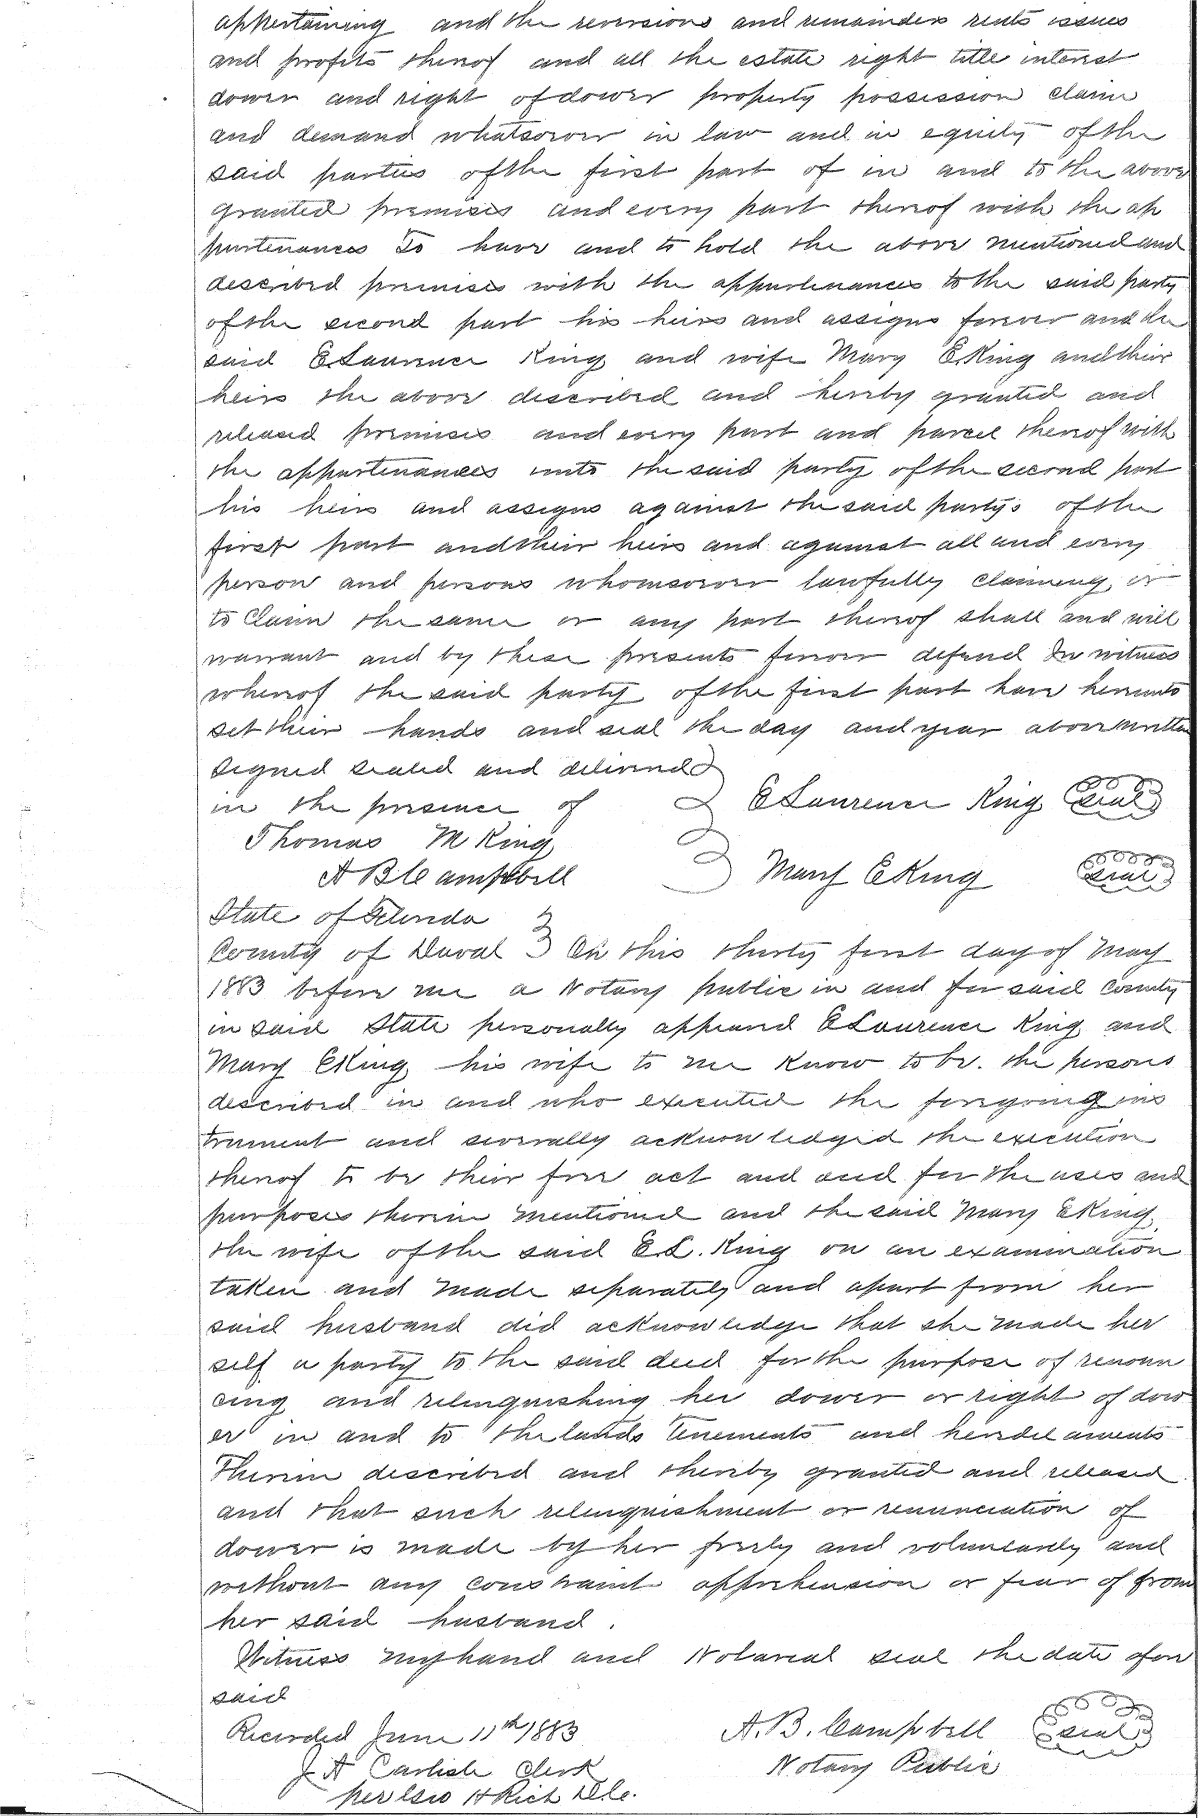 appertaining and the reversions and remainders rents issues
and profits thereof and all the estate right title interest
dower and right of dower property possession claim
and demand whatsoever in law and in equity of the
said parties of the first part of in and to the above
granted premises and every part thereof with the ap
purtenances To have and to hold the above mentioned and
described premises with the appurtenances to the said party
of the second part his heirs and assigns forever and the
said E Laurence King and wife Mary E King and their
heirs the above described and hereby granted and
released premises and every part and parcel thereof with
the appurtenances unto the said party of the second part
his heirs and assigns against the said partys of the
first part and their heirs and against all and every
person and persons whomsoever lawfully claiming or
to Claim the same or any part thereof shall and will
warrant and by these presents forever defend In witness
whereof the said party of the first part have hereunto
set their hands and seal the day and year above written
Signed sealed and delivered
in the presence of E Laurence King seal
Thomas M King
A B Campbell Mary E King seal
State of Florida
County of Duval On this thirty first day of May
1883 before me a Notary public in and for said County
in said State personally appeared E Laurence King and
Mary E King his wife to me Know to be. the persons
described in and who executed the foregoing ins
trument and severally acknowledged the execution
thereof to be their free act and deed for the uses and
purposes therein mentioned and the said Mary E King
the wife of the said E L. King on an examination
taken and made separately and apart from her
said husband did acknowledge that she made her
self a party to the said deed for the purpose of renoun
cing and relinquishing her dower or right of dow
er in and to the lands Tenements and heredetaments
Therein described and thereby granted and released
and that such relinquishment or renunciation of
dower is made by her freely and voluntarily and
without any constraint apprehension or fear of from
her said husband.
Witness my hand and Notarial seal the date afore
said
Recorded June 11th 1883 A. B. Campbell seal
J A Carlisle Clerk Notary Public
per Geo H Rich D.C.